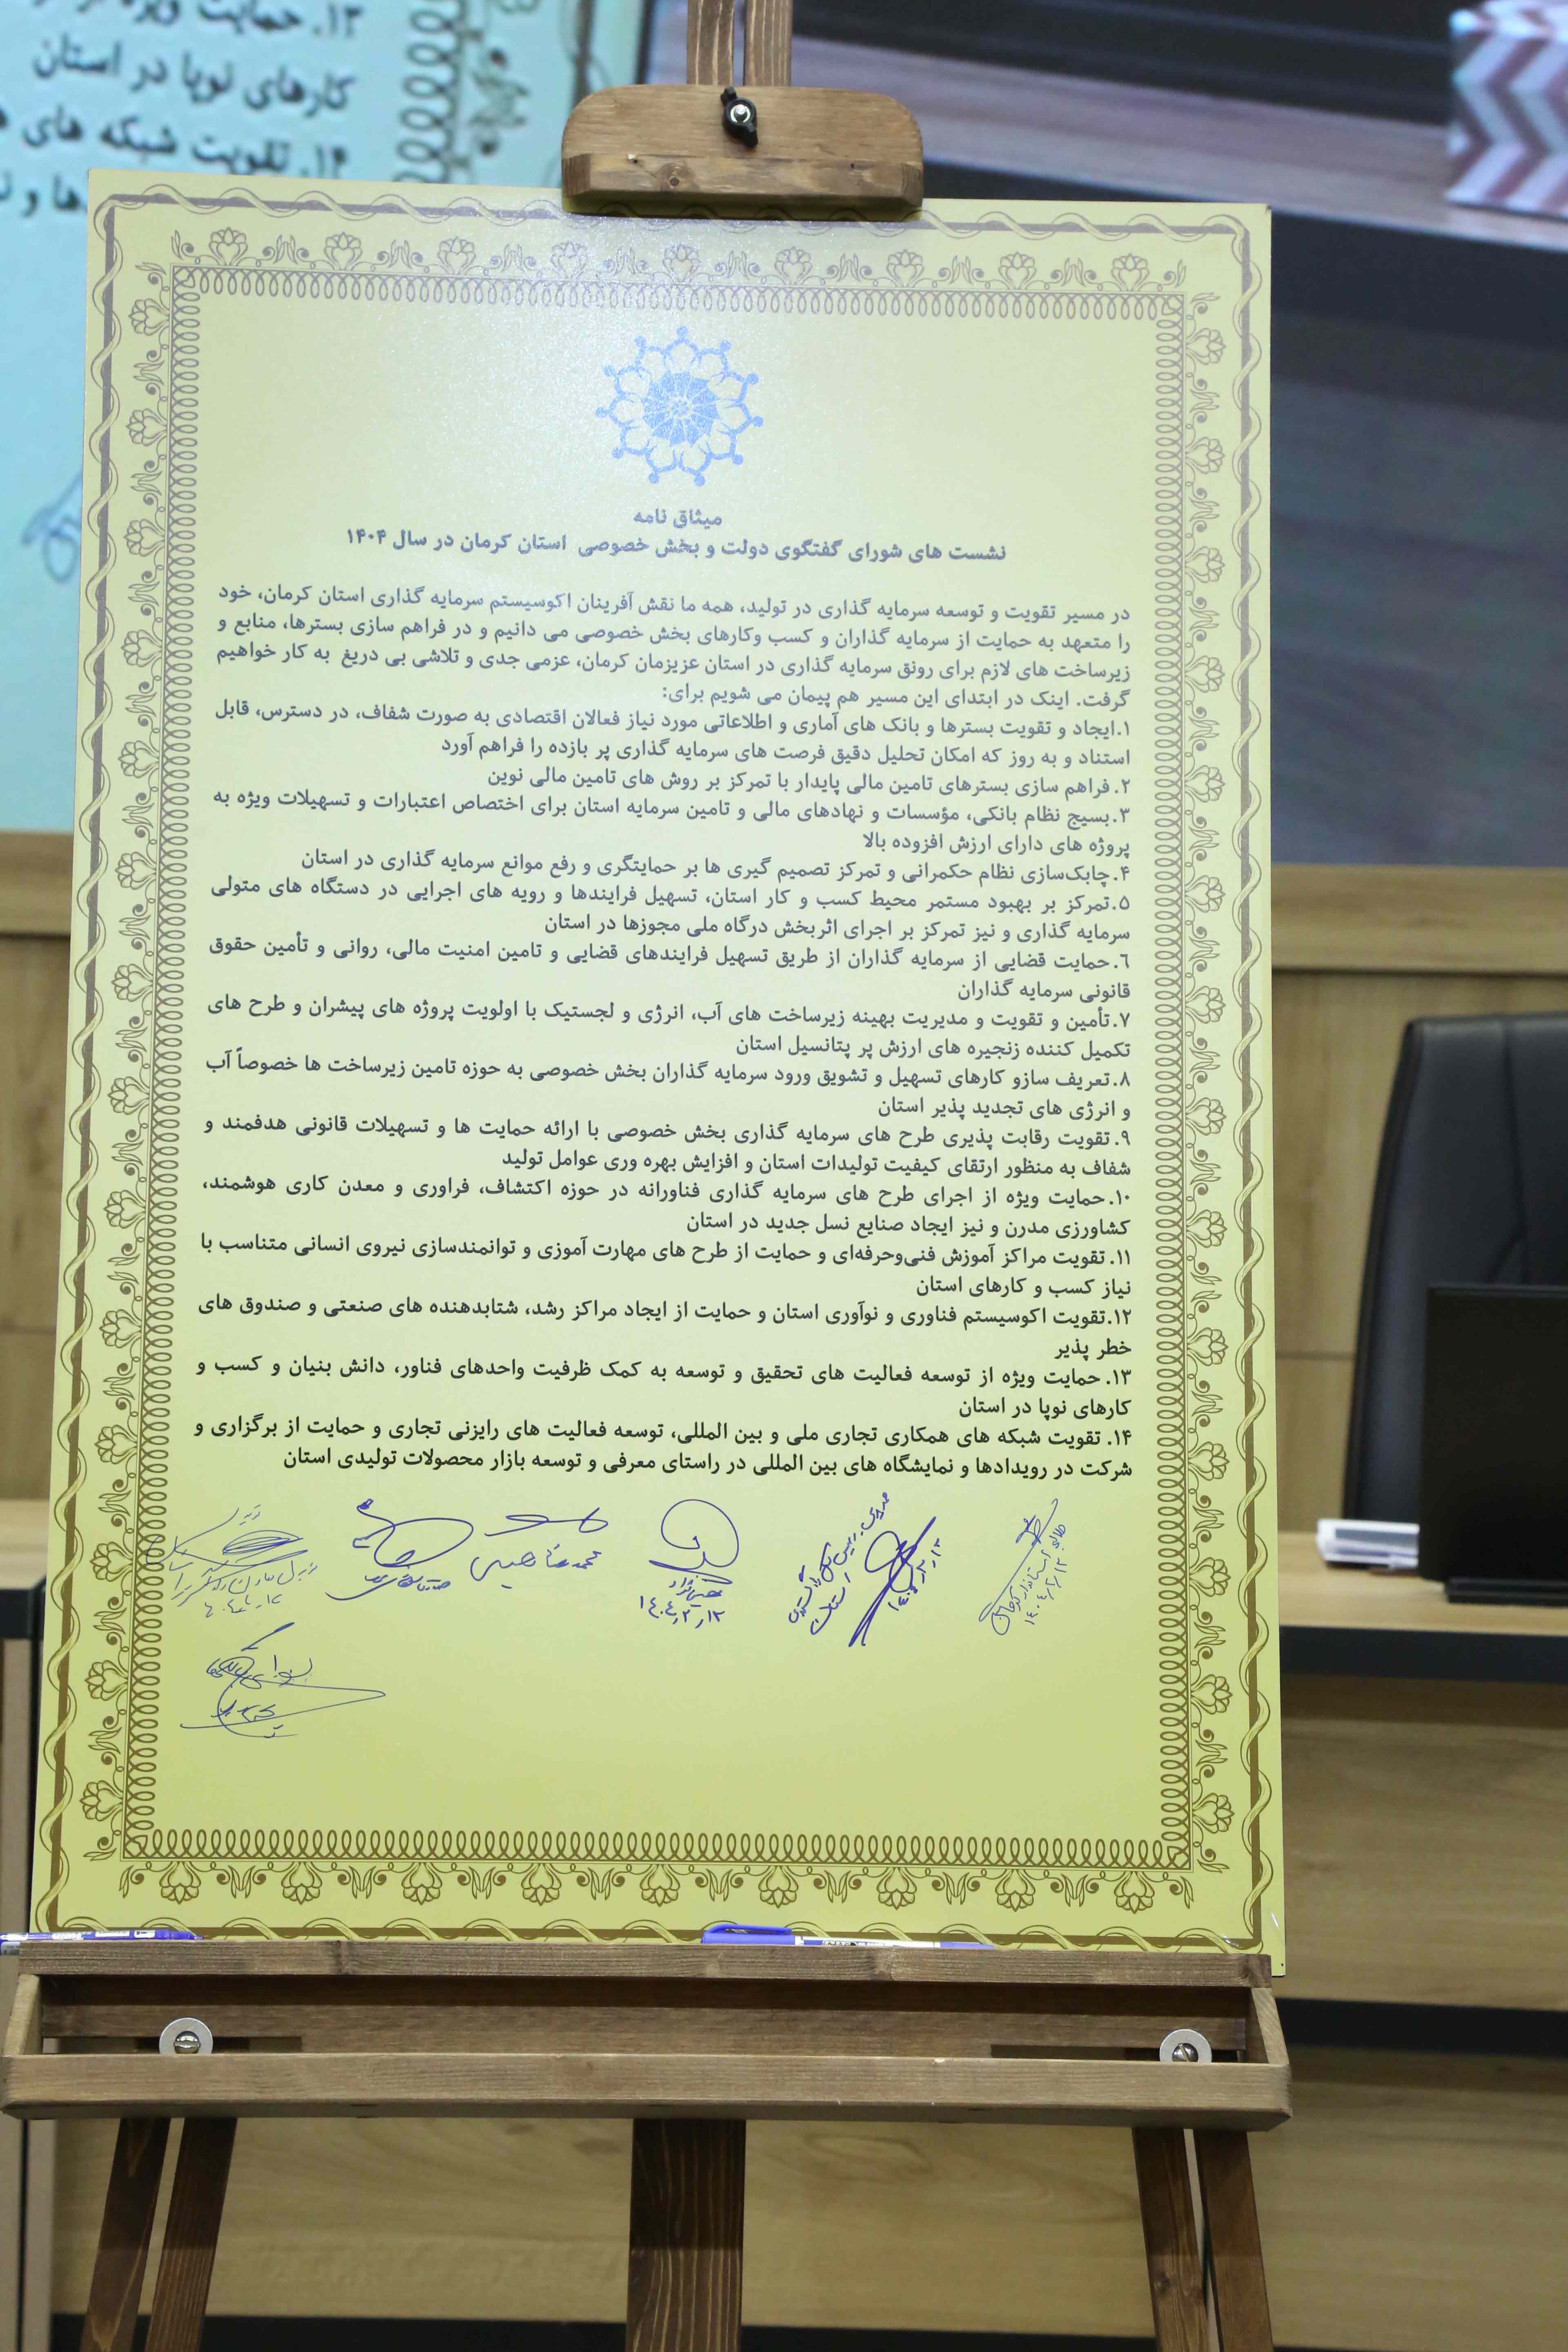 ۱۳. حمایت ویژه از
کارهای نوپا در استان
۱۴. تقویت شبکه های
میثاق نامه
نشست های شورای گفتگوی دولت و بخش خصوصی استان کرمان در سال ۱۴۰۴
در مسیر تقویت و توسعه سرمایه گذاری در تولید، همه ما نقش آفرینان اکوسیستم سرمایه گذاری استان کرمان، خود
را متعهد به حمایت از سرمایه گذاران و کسب وکارهای بخش خصوصی می دانیم و در فراهم سازی بسترها، منابع و
زیرساخت های لازم برای رونق سرمایه گذاری در استان عزیزمان کرمان، عزمی جدی و تلاشی بی دریغ به کار خواهیم
گرفت. اینک در ابتدای این مسیر هم پیمان می شویم برای:
۱.ایجاد و تقویت بسترها و بانک های آماری و اطلاعاتی مورد نیاز فعالان اقتصادی به صورت شفاف، در دسترس، قابل
استناد و به روز که امکان تحلیل دقیق فرصت های سرمایه گذاری پر بازده را فراهم آورد
۲. فراهم سازی بسترهای تامین مالی پایدار با تمرکز بر روش های تامین مالی نوین
۳.بسیج نظام بانکی، مؤسسات و نهادهای مالی و تامین سرمایه استان برای اختصاص اعتبارات و تسهیلات ویژه به
پروژه های دارای ارزش افزوده بالا
۴.چابک‌سازی نظام حکمرانی و تمرکز تصمیم گیری ها بر حمایتگری و رفع موانع سرمایه گذاری در استان
۵.تمرکز بر بهبود مستمر محیط کسب و کار استان، تسهیل فرایندها و رویه های اجرایی در دستگاه های متولی
سرمایه گذاری و نیز تمرکز بر اجرای اثربخش درگاه ملی مجوزها در استان
۶.حمایت قضایی از سرمایه گذاران از طریق تسهیل فرایندهای قضایی و تامین امنیت مالی، روانی و تأمین حقوق
قانونی سرمایه گذاران
۷.تأمین و تقویت و مدیریت بهینه زیرساخت های آب، انرژی و لجستیک با اولویت پروژه های پیشران و طرح های
تکمیل کننده زنجیره های ارزش پر پتانسیل استان
۸.تعریف سازو کارهای تسهیل و تشویق ورود سرمایه گذاران بخش خصوصی به حوزه تامین زیرساخت ها خصوصاً آب
و انرژی های تجدید پذیر استان
۹. تقویت رقابت پذیری طرح های سرمایه گذاری بخش خصوصی با ارائه حمایت ها و تسهیلات قانونی هدفمند و
شفاف به منظور ارتقای کیفیت تولیدات استان و افزایش بهره وری عوامل تولید
۱۰.حمایت ویژه از اجرای طرح های سرمایه گذاری فناورانه در حوزه اکتشاف، فراوری و معدن کاری هوشمند،
کشاورزی مدرن و نیز ایجاد صنایع نسل جدید در استان
۱۱. تقویت مراکز آموزش فنی‌وحرفه‌ای و حمایت از طرح های مهارت آموزی و توانمندسازی نیروی انسانی متناسب با
نیاز کسب و کارهای استان
۱۲.تقویت اکوسیستم فناوری و نوآوری استان و حمایت از ایجاد مراکز رشد، شتابدهنده های صنعتی و صندوق های
خطر پذیر
۱۳. حمایت ویژه از توسعه فعالیت های تحقیق و توسعه به کمک ظرفیت واحدهای فناور، دانش بنیان و کسب و
کارهای نوپا در استان
۱۴. تقویت شبکه های همکاری تجاری ملی و بین المللی، توسعه فعالیت های رایزنی تجاری و حمایت از برگزاری و
شرکت در رویدادها و نمایشگاه های بین المللی در راستای معرفی و توسعه بازار محصولات تولیدی استان
طالبی استاندار کرمان
۱۴۰۴/۲/۱۳
۱۴۰۴٫۲٫۱۳